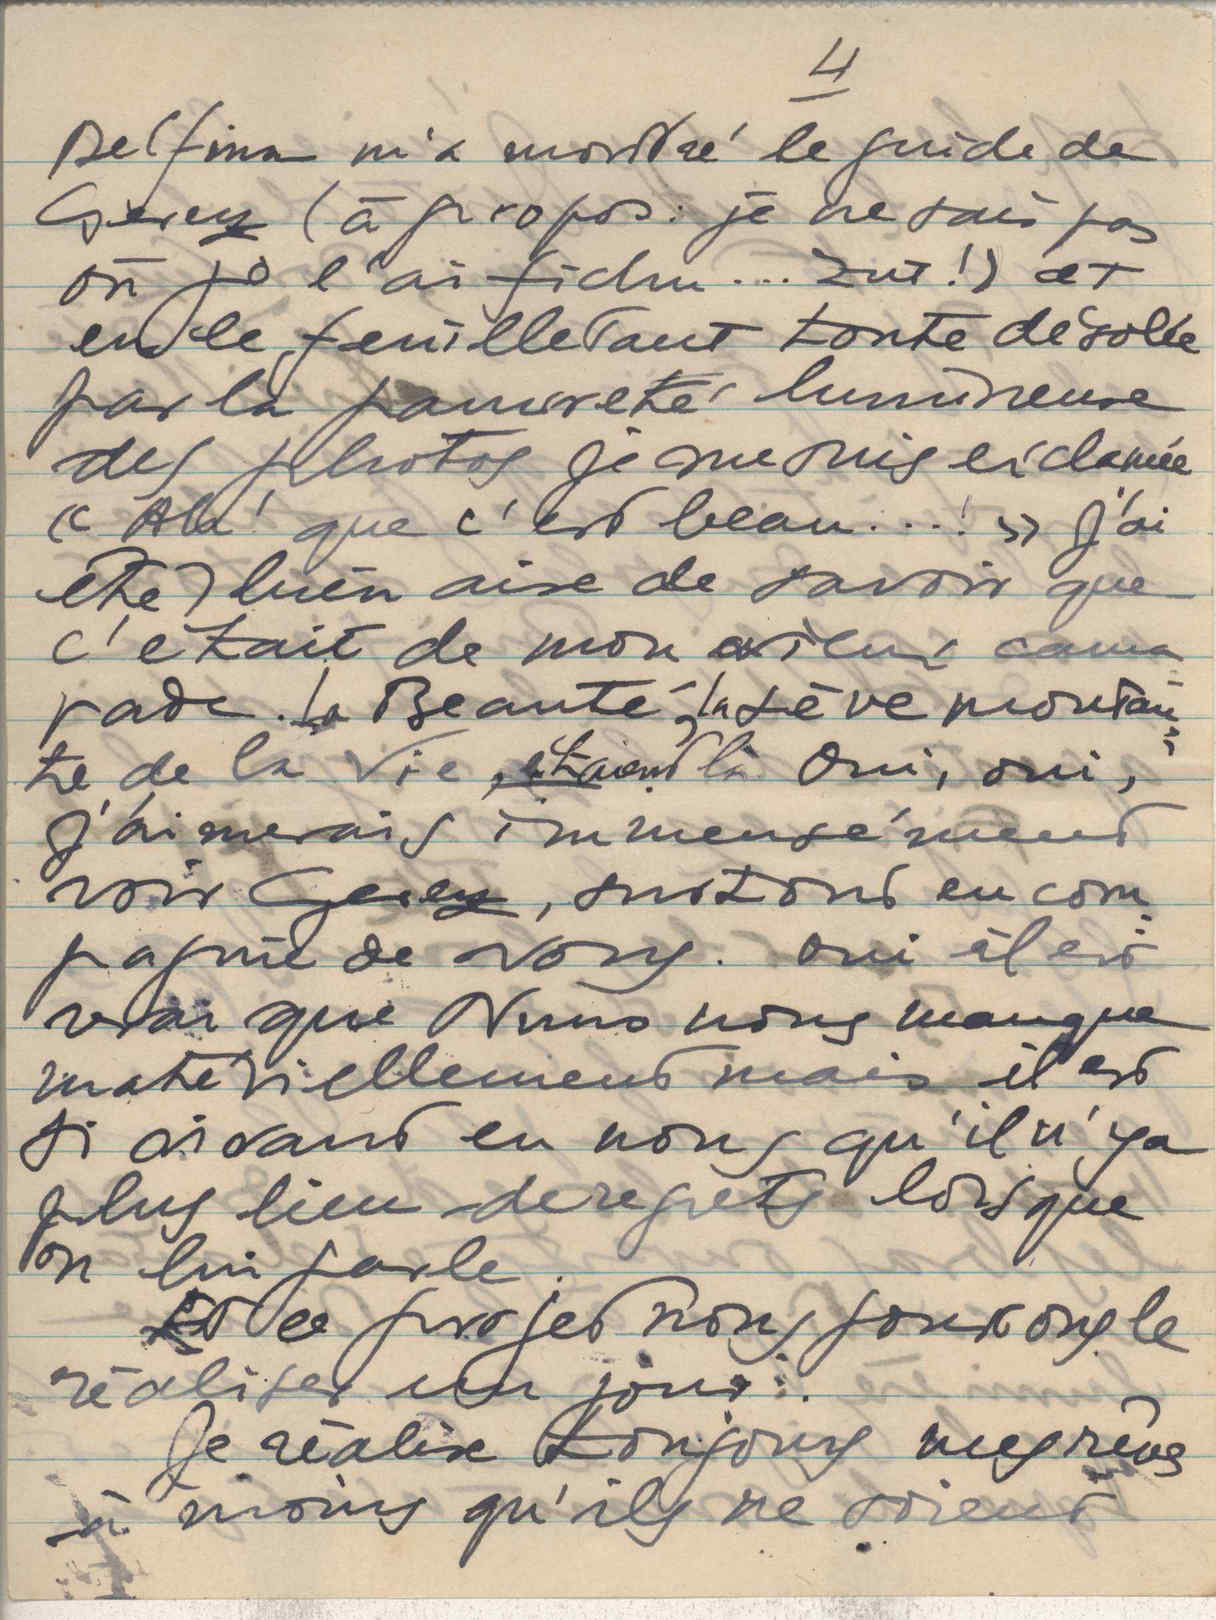 4
Delfina m'a montré le guide de
Gerez (à propos : je ne sais pas
où je l'ai fichu... Zut!) et
en le feuilletant toute désolée
par la pauvreté lumineuse
des photos je me suis exclamée
« Ah! que c'est beau...! » j'ai
été bien aise de savoir que
c'était de mon vieux cama
rade. La Beauté, la sève montan-
te de la Vie, étaient là. Oui, oui,
j'aimerais immensément
voir Gerez, surtout en com-
pagnie de vous. Oui il est
vrai que Nuno nous manque
matériellement mais il est
si vivant en nous qu'il n'ya
plus lieu de regrets lorsque
on lui parle.
Et ce projet nous pourrons le
réaliser un jour...
Je réalise toujours mes rêves
à moins qu'ils ne soient